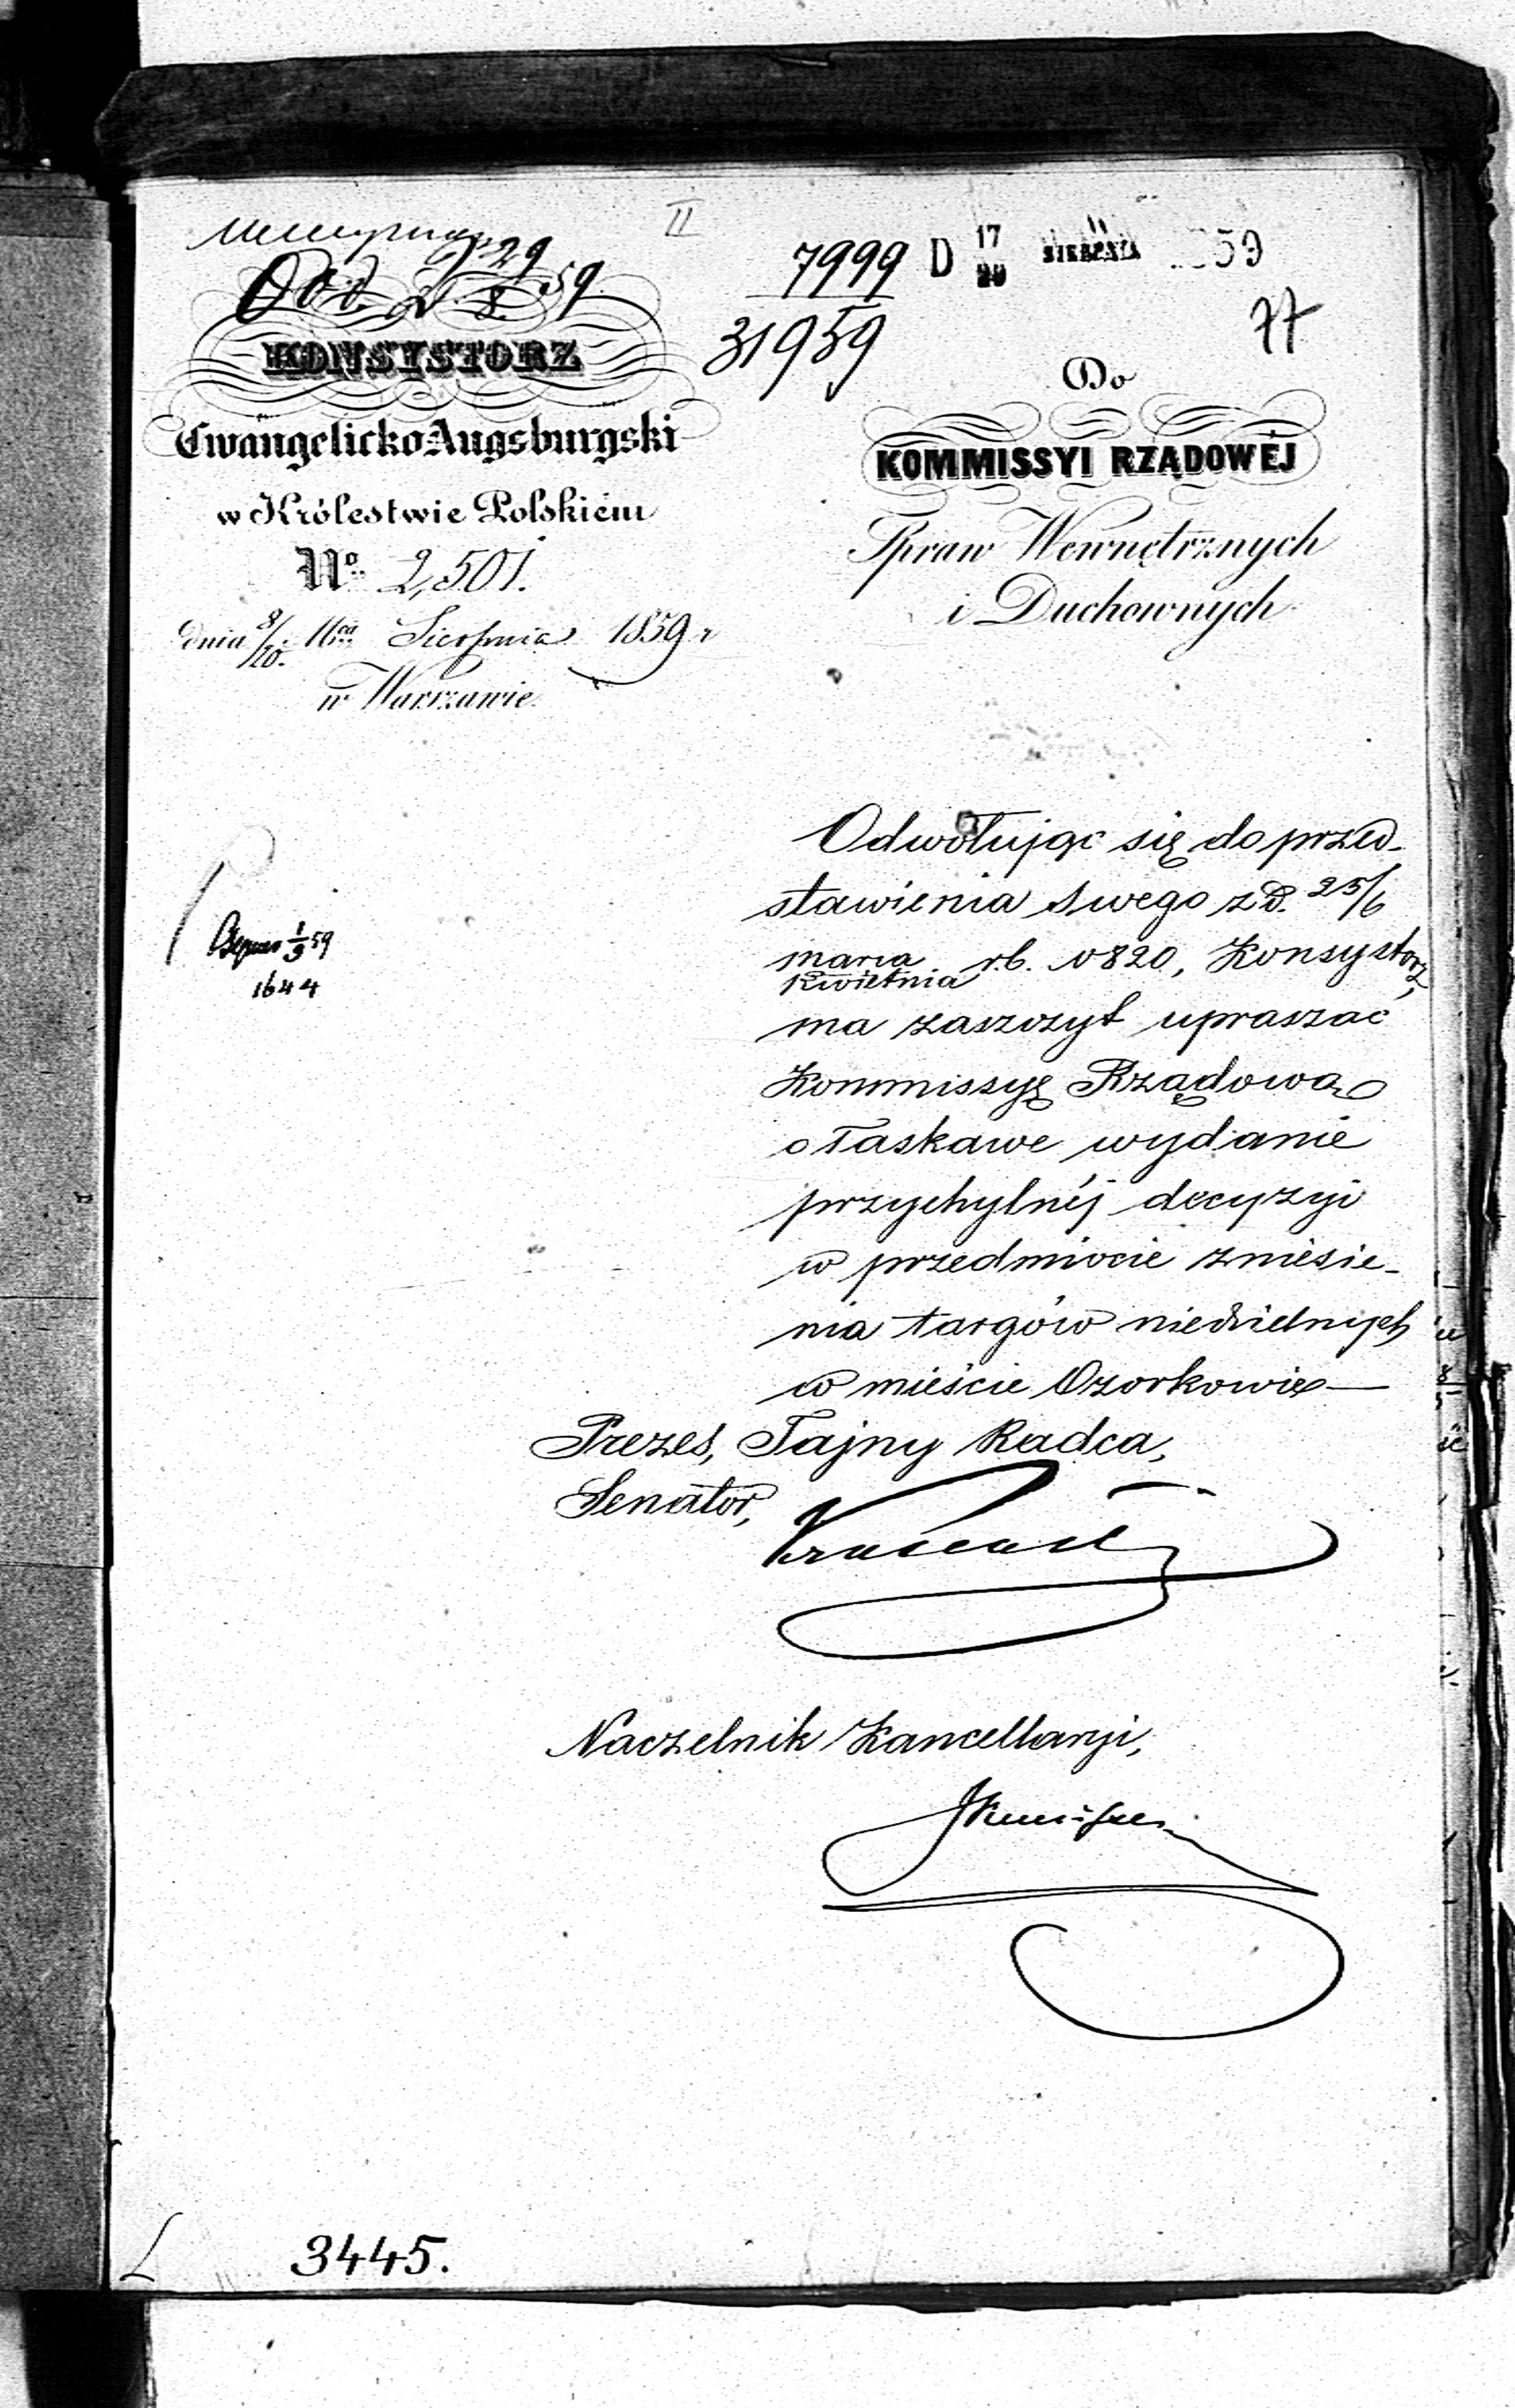 II
7999
31959
D 17/29 SIERPNIA 1859
77
Odd. 2/8 59
KONSYSTORZ
Ewangelicko-Augsburgski
w Królestwie Polskiém
No. 2,501.
dnia 8/20. Mca Sierpnia 1859 r
w Warszawie.
Do
KOMMISSYI RZĄDOWÉJ
Spraw Wewnętrznych
i Duchownych
Odwołując się do przed-
stawienia swego z d. 25/6
marca
kwietnia r.b. N 820, Konsystorz,
ma zaszczyt upraszać
Kommissyę Rządową
o łaskawe wydanie
przychylnéj decyzyi
w przedmiocie zniesie-
nia targów niedzielnych
w mieście Ozorkowie
1/9 59
1644
Prezes, Tajny Radca,
Senator,
Naczelnik Kancellaryi,
3445.